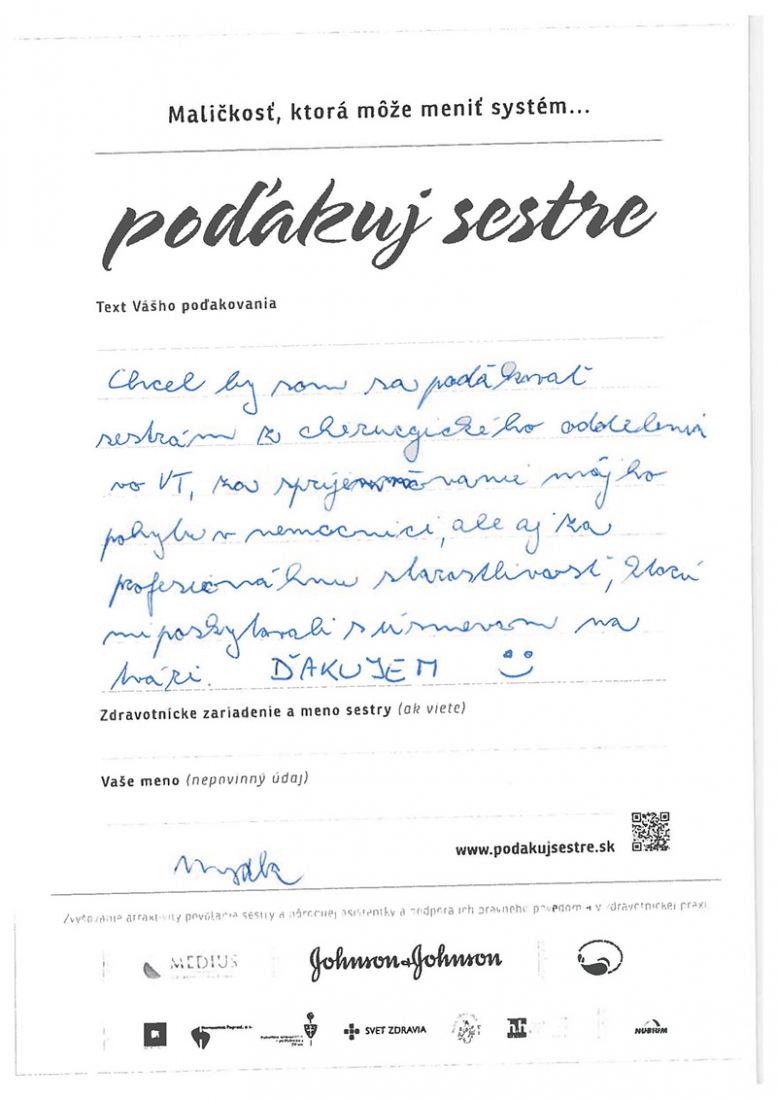 Maličkosť, ktorá môže meniť systém...
poďakuj sestre
Text Vášho poďakovania
Chcel by som sa poďákovať
sestrám z cherurgického oddelenia
vo VT, za spríjemňovanie môjho
pohybu v nemocnici, ale aj za
profesionálnu starostlivosť, ktorú
mi poskytovali s úsmevom na
tvári. ĎAKUJEM
Zdravotnícke zariadenie a meno sestry (ak viete)
Vaše meno (nepovinný údaj)
www.podakujsestre.sk
Zvyšovanie atraktivity povolania sestry a pôrodnej asistentky a podpora ich právneho povedomia v zdravotníckej praxi.
MEDIUS
Johnson&Johnson
SVET ZDRAVIA
NUBIUM